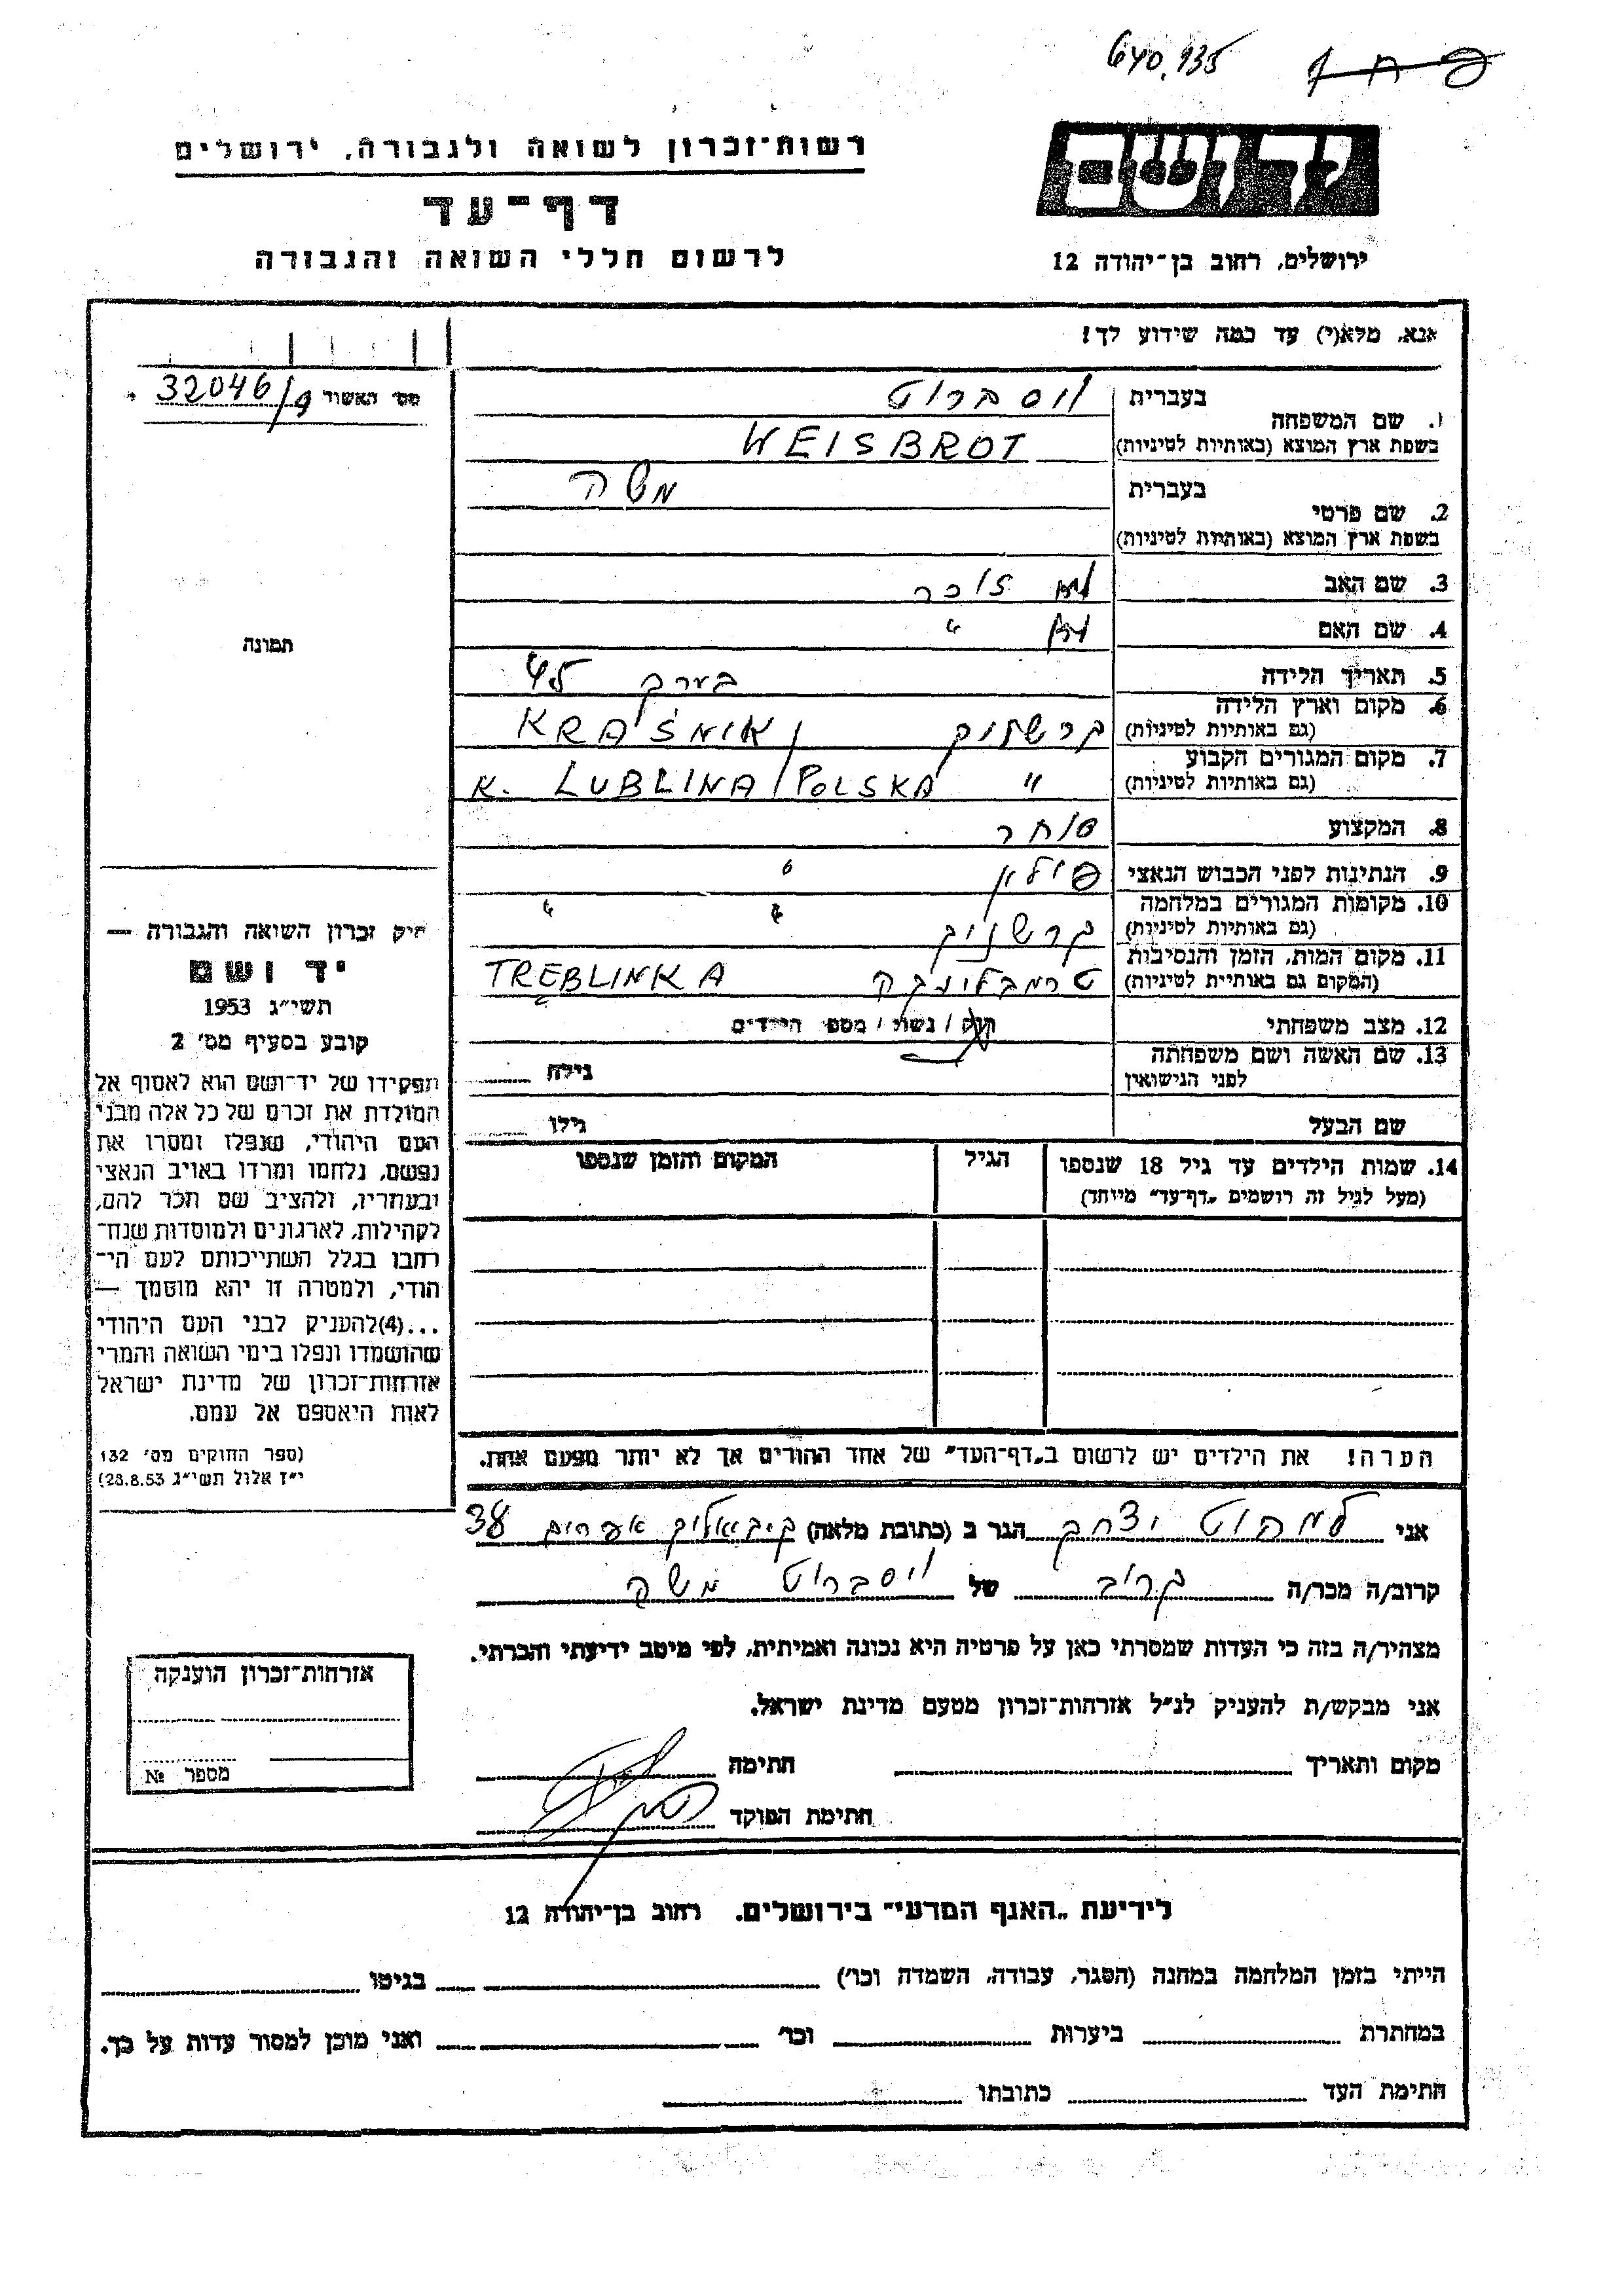 640.935
יד ושם
רשות־זכרון לשואה ולגבורה, ירושלים
דף־עד
לרשום חללי השואה והגבורה
ירושלים, רחוב בן־יהודה 12
אנא, מלא(י) עד כמה שידוע לך!
מס׳ האשור 32046/9
1. שם המשפחה
בעברית ויסברוט
בשפת ארץ המוצא (באותיות לטיניות) WEISBROT
2. שם פרטי
בעברית משה
בשפת ארץ המוצא (באותיות לטיניות)
3. שם האב לא זוכר
4. שם האם לא "
5. תאריך הלידה בערך 45
6. מקום וארץ הלידה
(גם באותיות לטיניות) קרשניק KRAŚNIK/
7. מקום המגורים הקבוע
(גם באותיות לטיניות) " K. LUBLINA/POLSKA
8. המקצוע סוחר
9. הנתינות לפני הכבוש הנאצי פולין
10. מקומות המגורים במלחמה
(גם באותיות לטיניות) קרשניק " "
11. מקום המות, הזמן והנסיבות
(המקום גם באותיות לטיניות) טרמבלינקה TRĘBLINKA
12. מצב משפחתי רווק / נשוי / מספר הילדים
13. שם האשה ושם משפחתה
לפני הנישואין גילה
שם הבעל גילו
תמונה
חוק זכרון השואה והגבורה —
יד ושם
תשי״ג 1953
קובע בסעיף מס׳ 2
תפקידו של יד־ושם הוא לאסוף אל
המולדת את זכרם של כל אלה מבני
העם היהודי, שנפלו ומסרו את
נפשם, נלחמו ומרדו באויב הנאצי
ובעוזריו, ולהציב שם וזכר להם,
לקהילות, לארגונים ולמוסדות שנח־
רבו בגלל השתייכותם לעם הי־
הודי, ולמטרה זו יהא מוסמך —
...(4)להעניק לבני העם היהודי
שהושמדו ונפלו בימי השואה והמרי
אזרחות־זכרון של מדינת ישראל
לאות היאספם אל עמם.
(ספר החוקים מס׳ 132
י״ז אלול תשי״ג 28.8.53)
14. שמות הילדים עד גיל 18 שנספו
(מעל לגיל זה רושמים „דף־עד״ מיוחד)
הגיל
המקום והזמן שנספו
הערה! את הילדים יש לרשום ב„דף־העד״ של אחד ההורים אך לא יותר מפעם אחת.
אני יצחק הגר ב (כתובת מלאה) 38
קרוב/ה מכר/ה קרוב של ויסברוט משה
מצהיר/ה בזה כי העדות שמסרתי כאן על פרטיה היא נכונה ואמיתית, לפי מיטב ידיעתי והכרתי.
אני מבקש/ת להעניק לנ״ל אזרחות־זכרון מטעם מדינת ישראל.
מקום ותאריך חתימה
חתימת הפוקד
אזרחות־זכרון הוענקה
מספר №
לידיעת „האגף המדעי״ בירושלים, רחוב בן־יהודה 12
הייתי בזמן המלחמה במחנה (הסגר, עבודה, השמדה וכו׳) בגיטו
במחתרת ביערות וכו׳ ואני מוכן למסור עדות על כך.
חתימת העד כתובתו